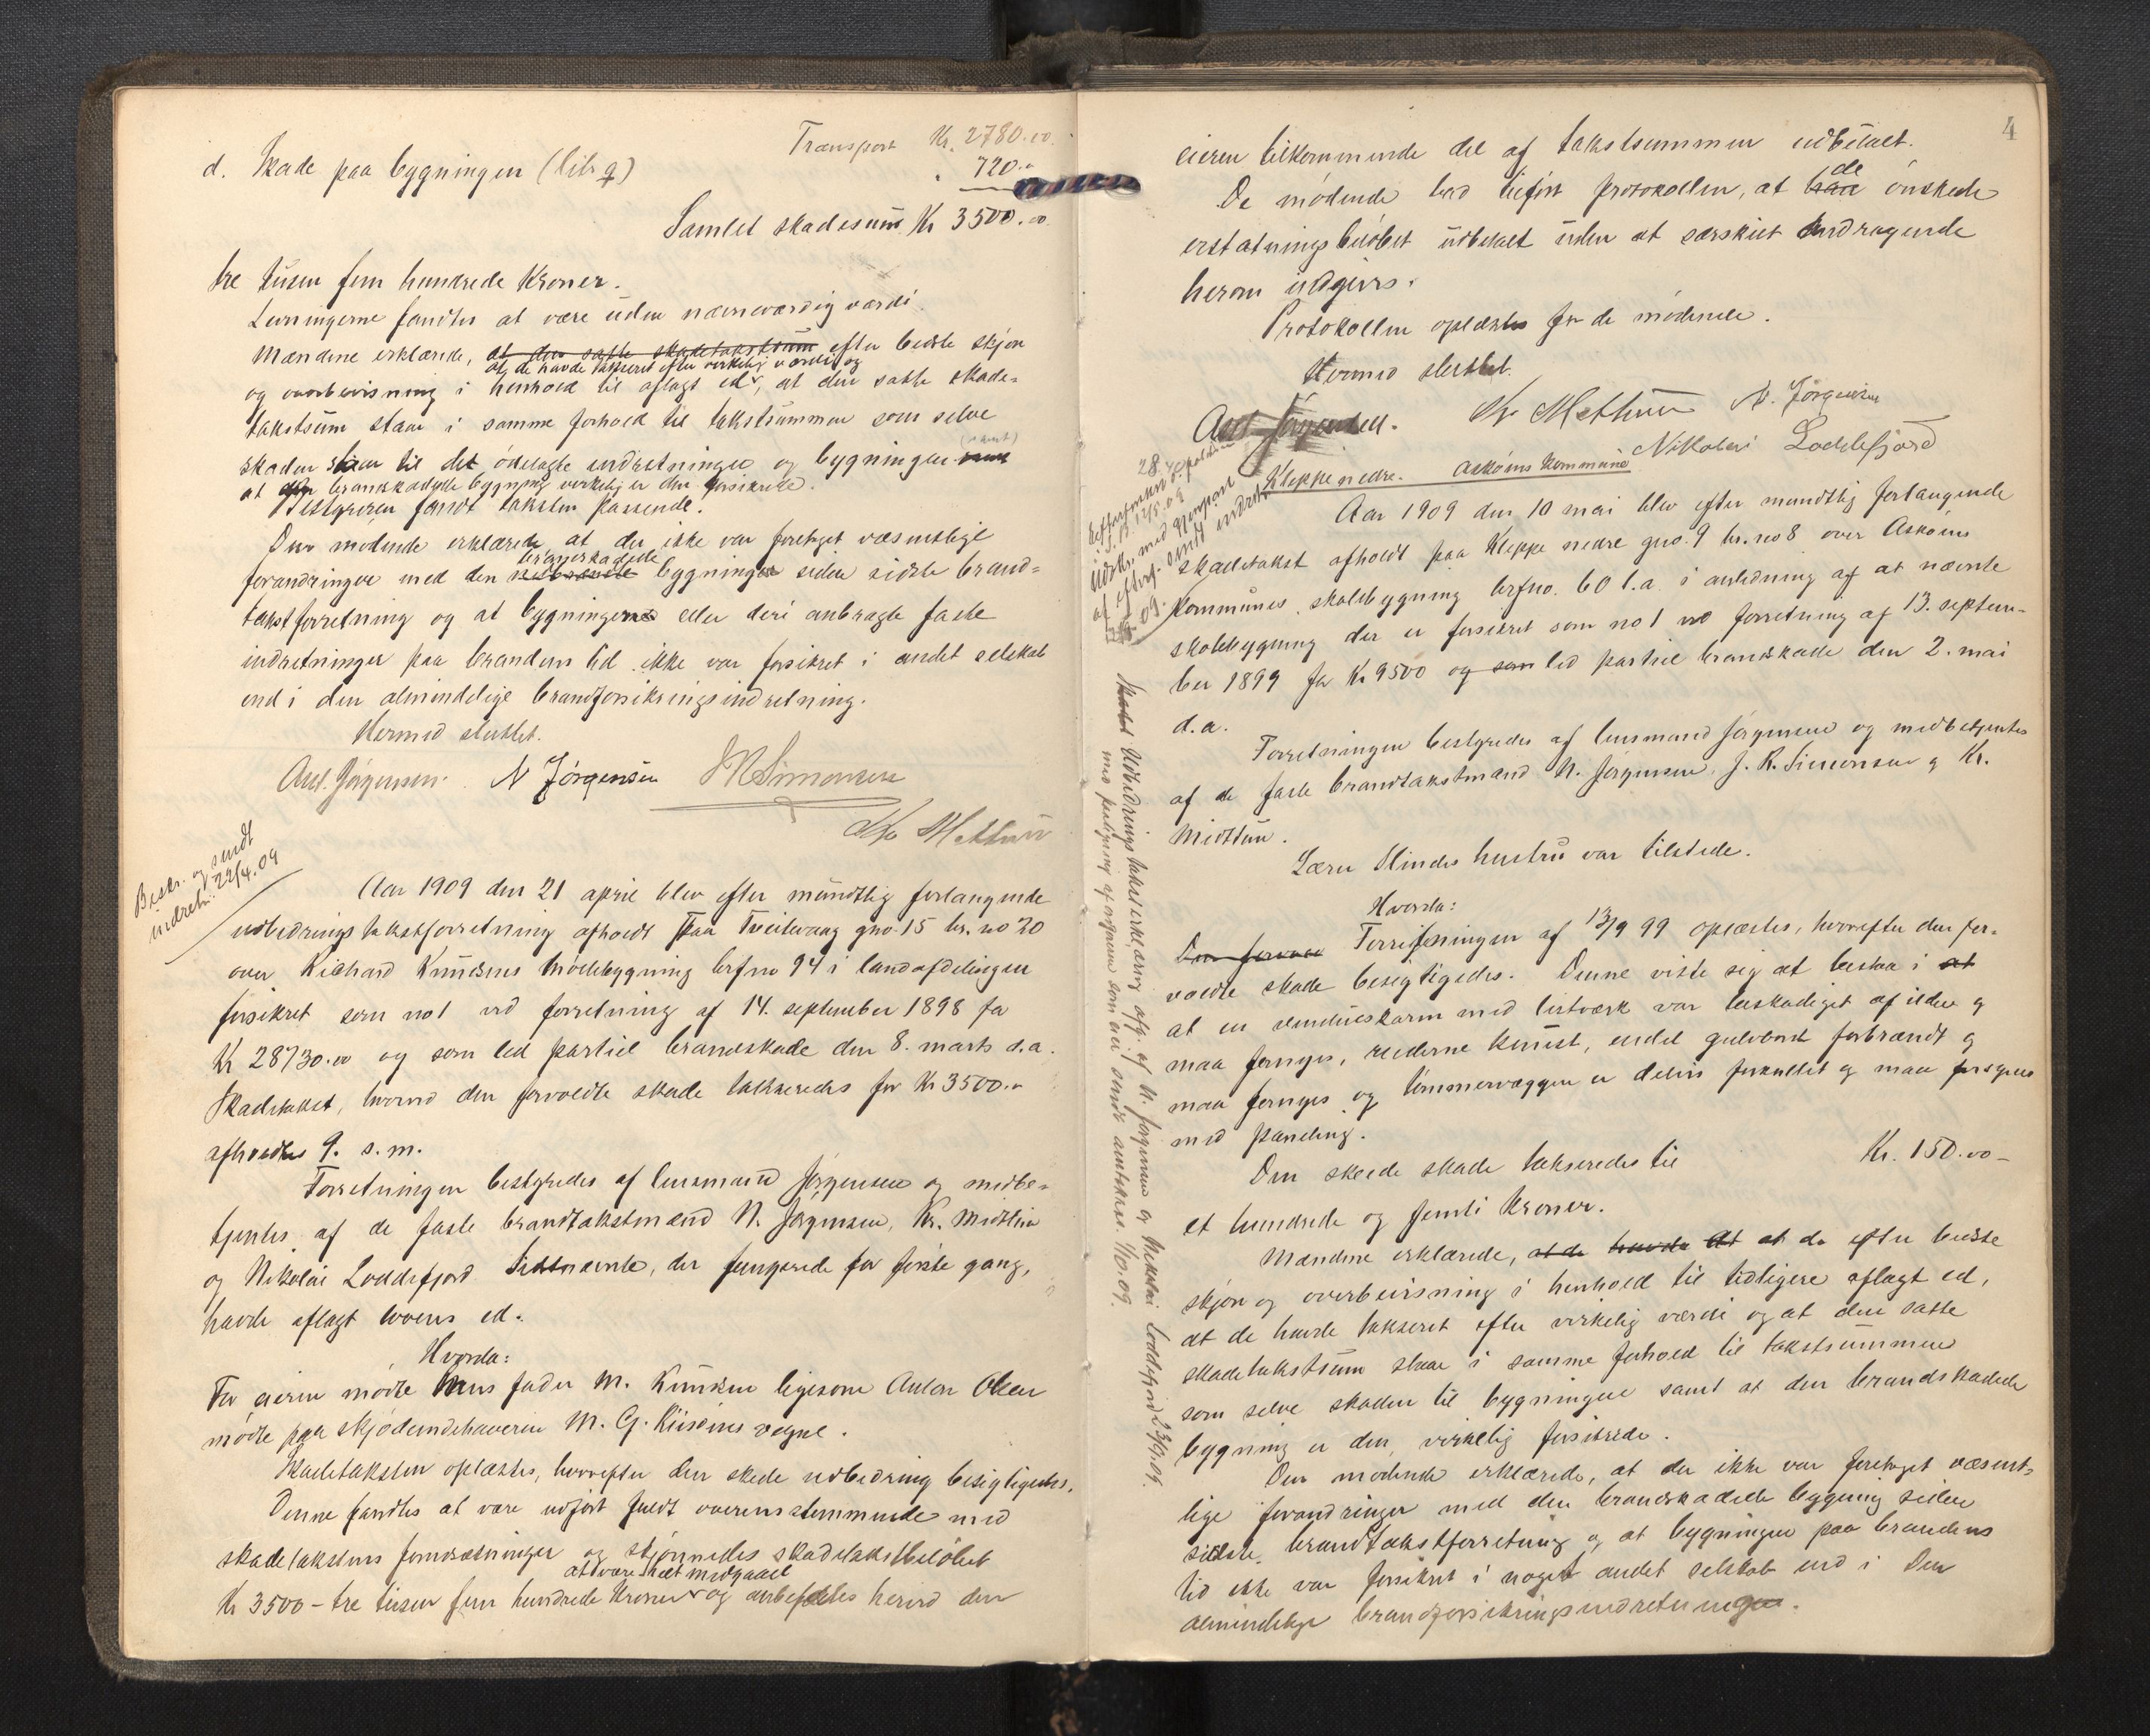 Transport Kr. 2780.00
d. Skade paa bygningen (litr q) " 720.00
Samlet skadesum Kr 3500.00
tre tusen fem hundrede Kroner.
Levningerne fandtes at være uden nævneværdig værdi.
Mændene erklærede, at den satte skadetakstsum efter bedste skjøn
at de havde takseret efter virkelig værdi og
og overbevisning i henhold til aflagt ed, at den satte skade-
takstsum staar i samme forhold til takstsummen som selve
skaden staar til det ødelagte indretninger og bygningen samt
(samt)
at den brandskadede bygning virkelig er den forsikrede.
Bestyreren fandt taksten passende.
Den mødende erklærede at der ikke var foretaget væsentlige
brandskadede
forandringer med den nedbrændte bygninger siden sidste brand-
takstforretning og at bygningerne eller deri anbragte faste
indretninger paa brandens tid ikke var forsikret i andet selskab
end i den almindelige brandforsikringsindretning.
Hermed sluttet.
Aut. Jørgensen. N Jørgensen J R Simonsen
Kr Midttun
Beskr. og sendt
indretn. 22/4.09
Aar 1909 den 21 april blev efter mundtlig forlangende
udbedringstakstforretning afholdt paa Tveitevaag gno. 15 br. no 20
over Richard Knudsens mødebygning brfno 94 i landafdelingen
forsikret som no1 ved forretning af 14. september 1898 for
Kr 28730.00 og som led partiel brandskade den 8. marts d.a.
Skadetakst, hvorved den forvoldte skade takseredes for Kr 3500.00
afholdtes 9. s.m.
Forretningen bestyredes af lensmand Jørgensen og medbe-
tjentes af de faste brandtakstmænd N. Jørgensen, Kr. Midttun
og Nikolai Loddefjord. Sidstnævnte, der fungerede for første gang,
havde aflagt lovens ed.
Hvorda:
For eieren mødte hans fader M. Knudsen ligesom Anton Olsen
mødte paa skjødeindehaveren M. G. vegne.
Skadetaksten oplæstes, hvorefter den skede udbedring besigtigedes.
Denne fandtes at være udført fuldt overensstemmende med
skadetakstens forudsætninger og skjønnedes skadetakstbeløbet
at være medgaaet
Kr 3500 - tre tusen fem hundrede Kroner og anbefaltes herved den
4
eieren tilkommende del af takstsummen udbetalt.
de
De mødende lod tilført protokollen, at baa ønskede
erstatningsbeløbet udbetalt uden at særskilt andragende
herom indgives.
Protokollen oplæstes for de mødende.
Hermed sluttet.
Aut. Jørgensen. Kr Midttun N. Jørgensen
Nikolai Loddefjord
Kleppe nedre. Askøens kommune
Udskr. med gjenpart
af eftersyn sendt indretn.
09.
Aar 1909 den 10 mai blev efter mundtlig forlangende
skadetakst afholdt paa Kleppe nedre gno. 9 br. no 8 over Askøens
kommunes skolebygning brfno. 60 l.a. i anledning af at nævnte
skolebygning der er forsikret som no 1 ved forretning af 13. septem-
ber 1899 for Kr 9500 og som led partiel brandskade den 2. mai
d.a.
Forretningen bestyredes af lensmand Jørgensen og medbetjentes
af de faste brandtakstmænd N. Jørgensen, J. R. Simonsen og Kr.
Midttun.
Lærer Slindes hustru var tilstede.
Hvorda:
Den forvol Forretningen af 13/9 99 oplæstes, hvorefter den for-
voldte skade besigtigedes. Denne viste sig at bestaa i at
at en vindueskarm med listværk var beskadiget af ilden og
maa fornyes, ruderne knust, endel gulvbord forbrændt og
maa fornyes og tømmervæggen er delvis forkullet og maa forsynes
med paneling.
Den skede skade takseredes til Kr. 150.00
et hundrede og femti Kroner.
Mændene erklærede, at de havde at at de efter bedste
skjøn og overbevisning i henhold til tidligere aflagt ed,
at de havde takseret efter virkelig værdi og at den satte
skadetakstsum staar i samme forhold til takstsummen
som selve skaden til bygningen samt at den brandskadede
bygning er den virkelig forsikrede.
Den mødende erklærede, at der ikke var foretaget væsent-
lige forandringer med den brandskadede bygning siden
sidste brandtakstforretning og at bygningen paa brandens
tid ikke var forsikret i noget andet selskab end i Den
almindelige brandforsikringsindretningen.
Skoled Udbedringstaksterklæring afg. af N. Jørgensen og Nikolai Loddefjord 23/9.09.